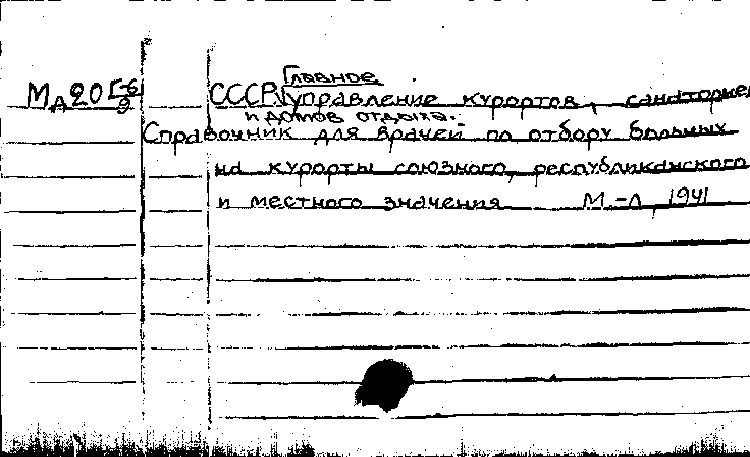 Главное
Мд20 Г-6/9 СССР. Управление курортов, санаториев
и домов отдыха.
Справочник для врачей по отбору больных
на курорты союзного, республиканского
и местного значения М.-Л, 1941